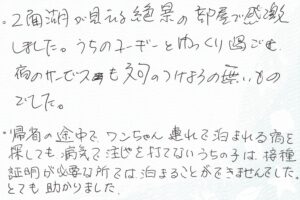 ・2面湖が見える絶景の部屋で感激
しました。うちのコーギーとゆっくり過ごせ、
宿のサービスも文句のつけようの無いもの
でした。
・帰省の途中で、ワンちゃん連れで泊まれる宿を
探しても、病気で注射を打てないうちの子は、接種
証明が必要な所では泊まることができませんでした。
とても助かりました。